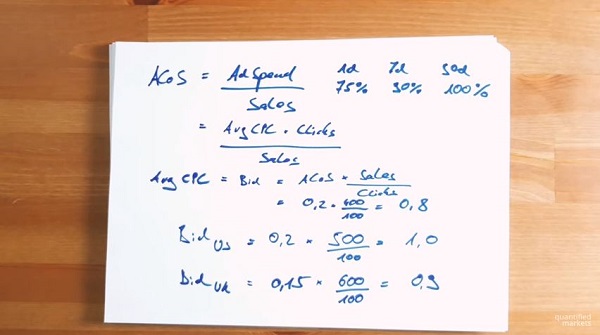 ACoS = Ad Spend / Sales 1d 7d 30d
75% 90% 100%
= Avg CPC · Clicks / Sales
Avg CPC = Bid = ACoS × Sales / Clicks
= 0,2 · 400 / 100 = 0,8
Bid US = 0,2 × 500 / 100 = 1,0
Bid UK = 0,15 × 600 / 100 = 0,9
quantified
markets